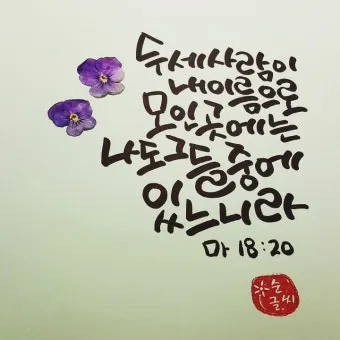 두세사람이
내이름으로
모인곳에는
나도그들중에
있느니라
마 18:20
순
글씨